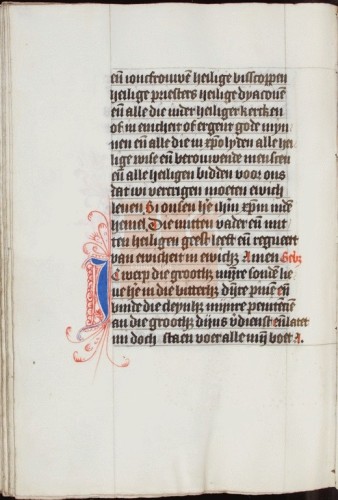 eñ ioncfrouwẽ heilige bisscoppen
heilige priesters heilige dyaconẽ
eñ alle die in der heiliger kercken
of in enicheit of ergent gode mýn
nen eñ alle die in xp̃o lyden alle hei
lige wise eñ berouwende menscen
eñ alle heiligen bidden voor ons
dat wi vercrigen moeten ewich
leuen Bi onsen hẽ ihũ xp̃m inden
hemel. Die mitten vader eñ mit
ten heiligen geest leeft eñ regneert
van ewicheit in ewichz Amen Gebz
werp die grootlz mýre sondẽ
ue hẽ in die bitterlz dýre pinẽ eñ
vinde die cleynlz mýnre penitenciẽ
an die grootlz dijns vdienst eñ laet
mi doch staen voer alle mýn boet A.